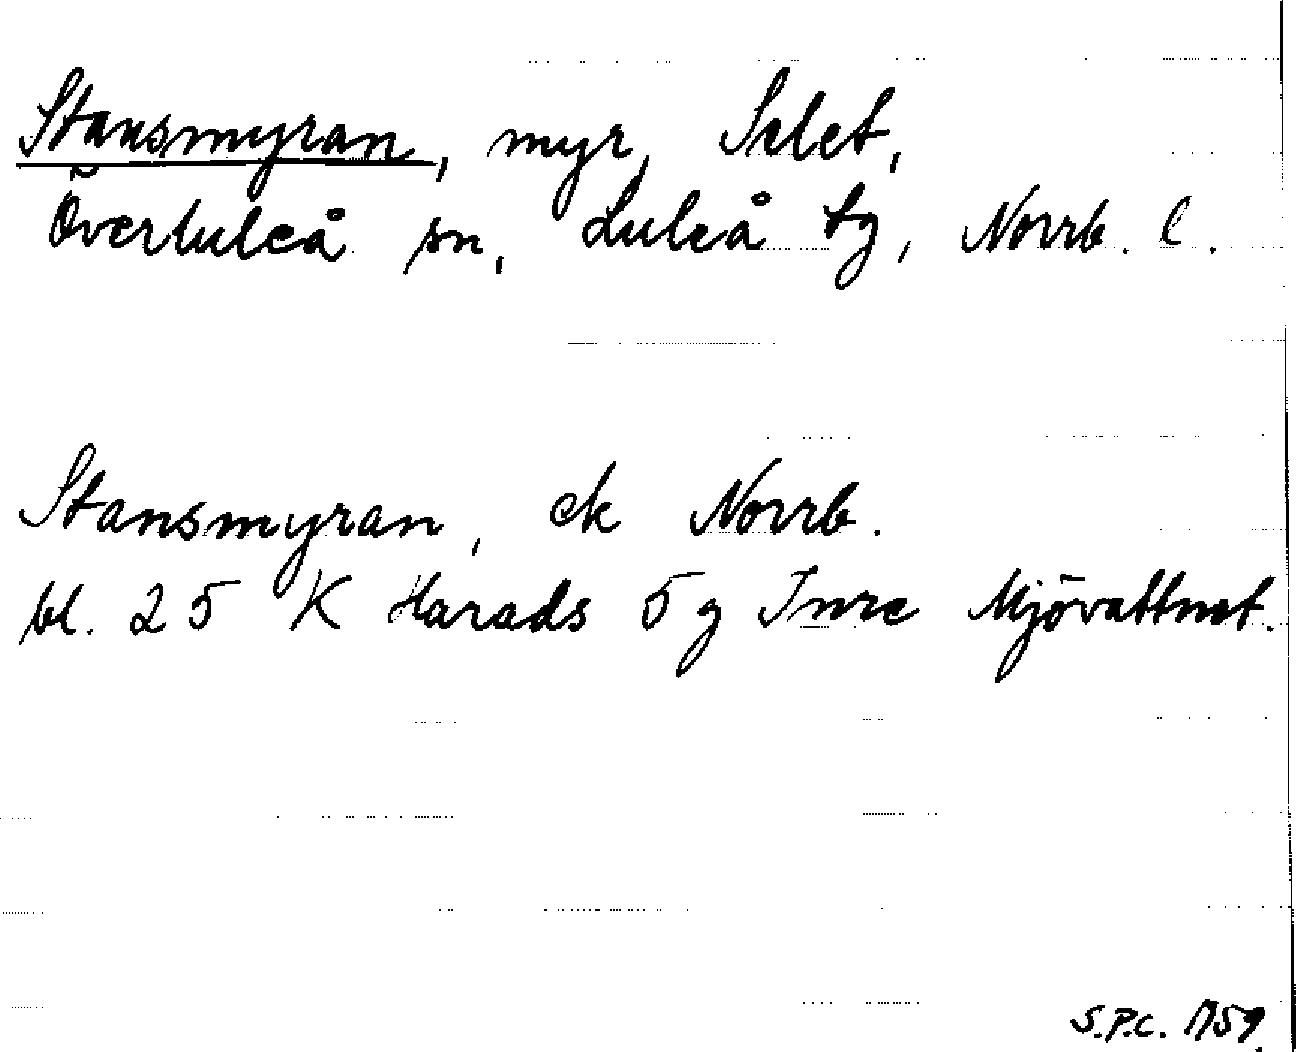 Stansmyran, myr, Selet,
Överluleå sn, Luleå tg, Norrb. l.
Stansmyran, ek Norrb.
bl. 25 K Harads 5 g Inre Mjövattnet.
S.P.C. 1959.